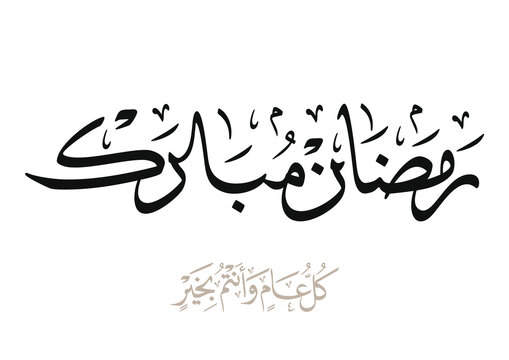 رمضان مُبارك
كُلُّ عَامٍ وَأَنتُمْ بِخَيْرٍ